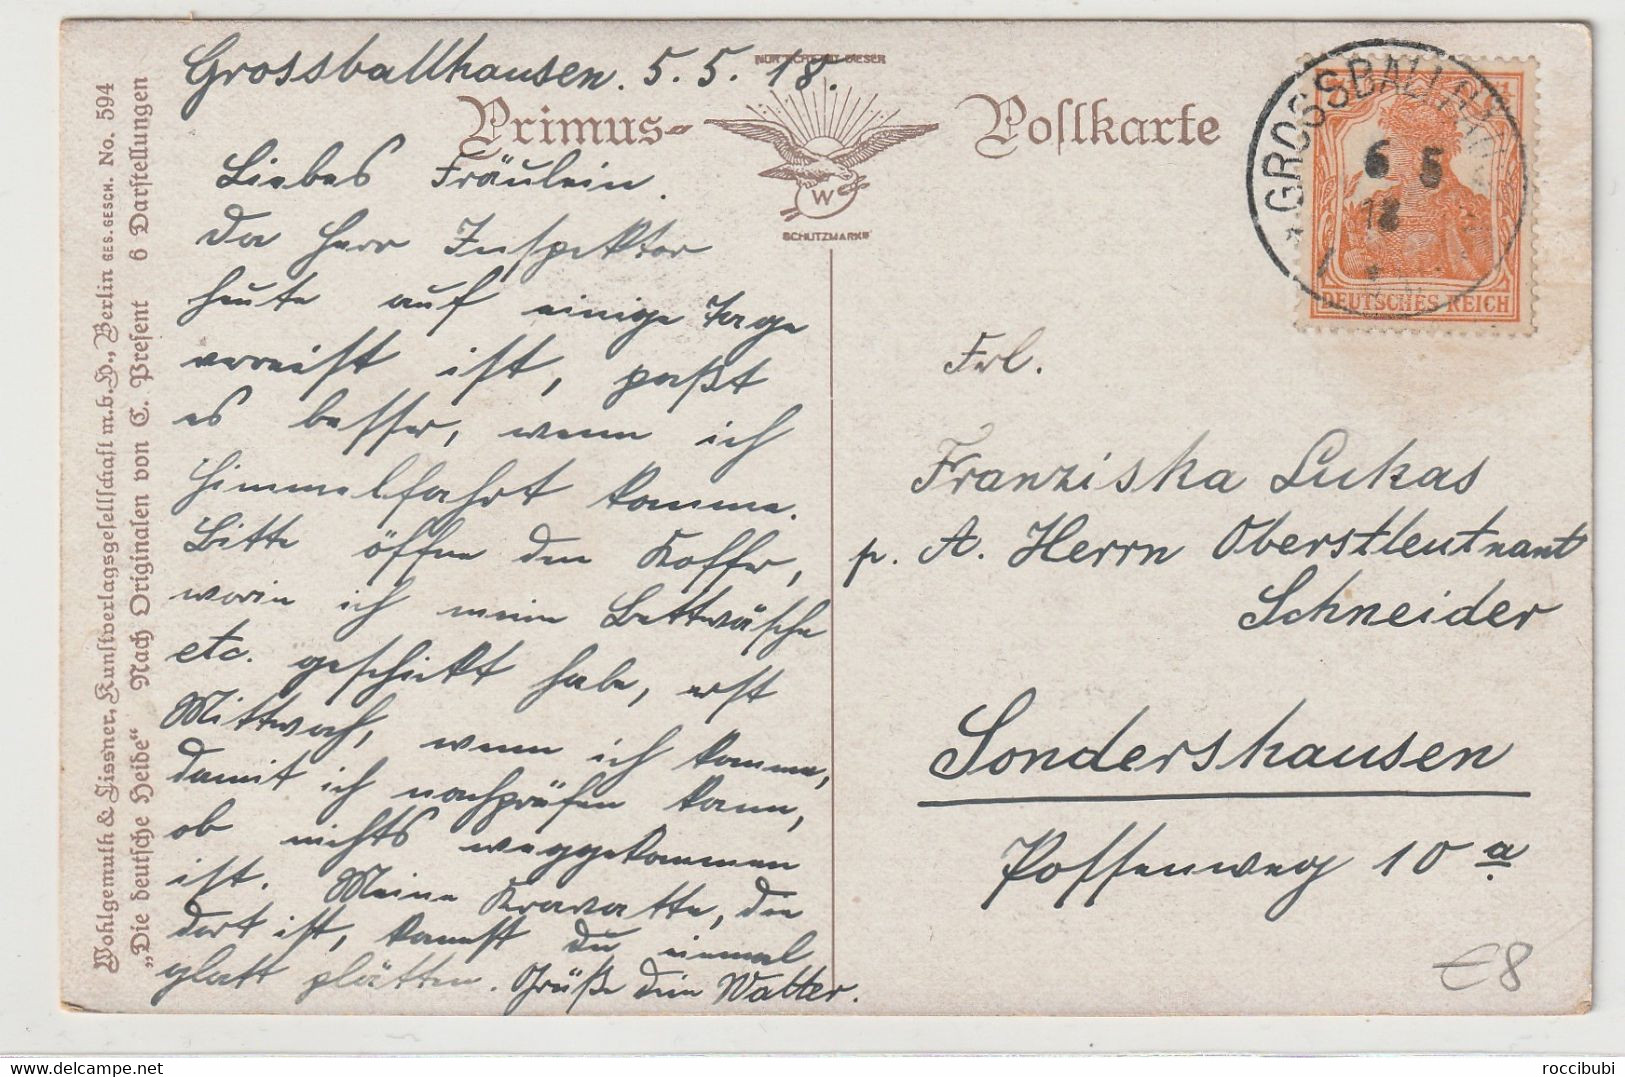 Grossballhausen. 5.5.18.
NUR ECHT MIT DIESER
Primus-
Postkarte
W
SCHUTZMARKE
Liebes Fräulein.
Da Herr Inspektor
heute auf einige Tage
verreist ist, paßt
es besser, wenn ich
Himmelfahrt komme.
Bitte öffne den Koffer,
worin ich meine Bettwäsche
etc. geschickt habe, erst
Mittwoch, wenn ich komme,
damit ich nachprüfen kann,
ob nichts weggekommen
ist. Meine Kravatte, die
dort ist, kannst du einmal
glatt plätten. Grüße dein Walter.
GROSSBALLHAUSEN
6 5
18
DEUTSCHES REICH
Frl.
Franziska Lukas
p. A. Herrn Oberstleutnant
Schneider
Sondershausen
Possenweg 10 a
€8
Wohlgemuth & Lissner, Kunstverlagsgesellschaft m.b.H., Berlin GES. GESCH. No. 594
„Die deutsche Heide“ Nach Originalen von C. Present 6 Darstellungen
roccibubi